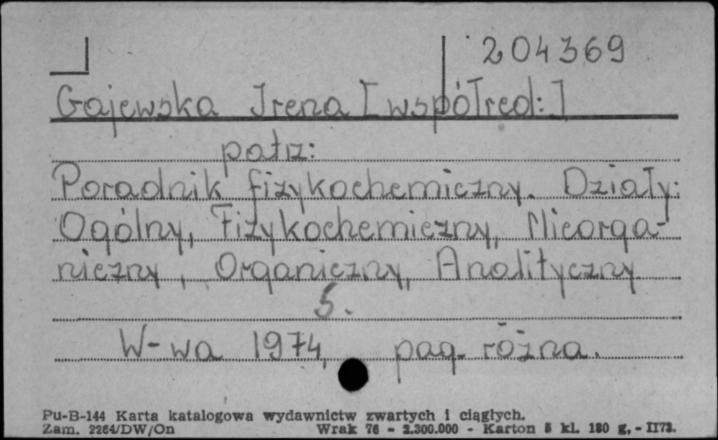 204369
Gajewska Irena [współred:]
patrz:
Poradnik fizykochemiczny. Działy:
Ogólny, Fizykochemiczny, Nieorga-
niczny, Organiczny, Analityczny
5.
W-wa 1974, pag. różna.
Pu-B-144 Karta katalogowa wydawnictw zwartych i ciągłych.
Zam. 2264/DW/On Wrak 76 - 2.300.000 - Karton 5 kl. 180 g. - II73.